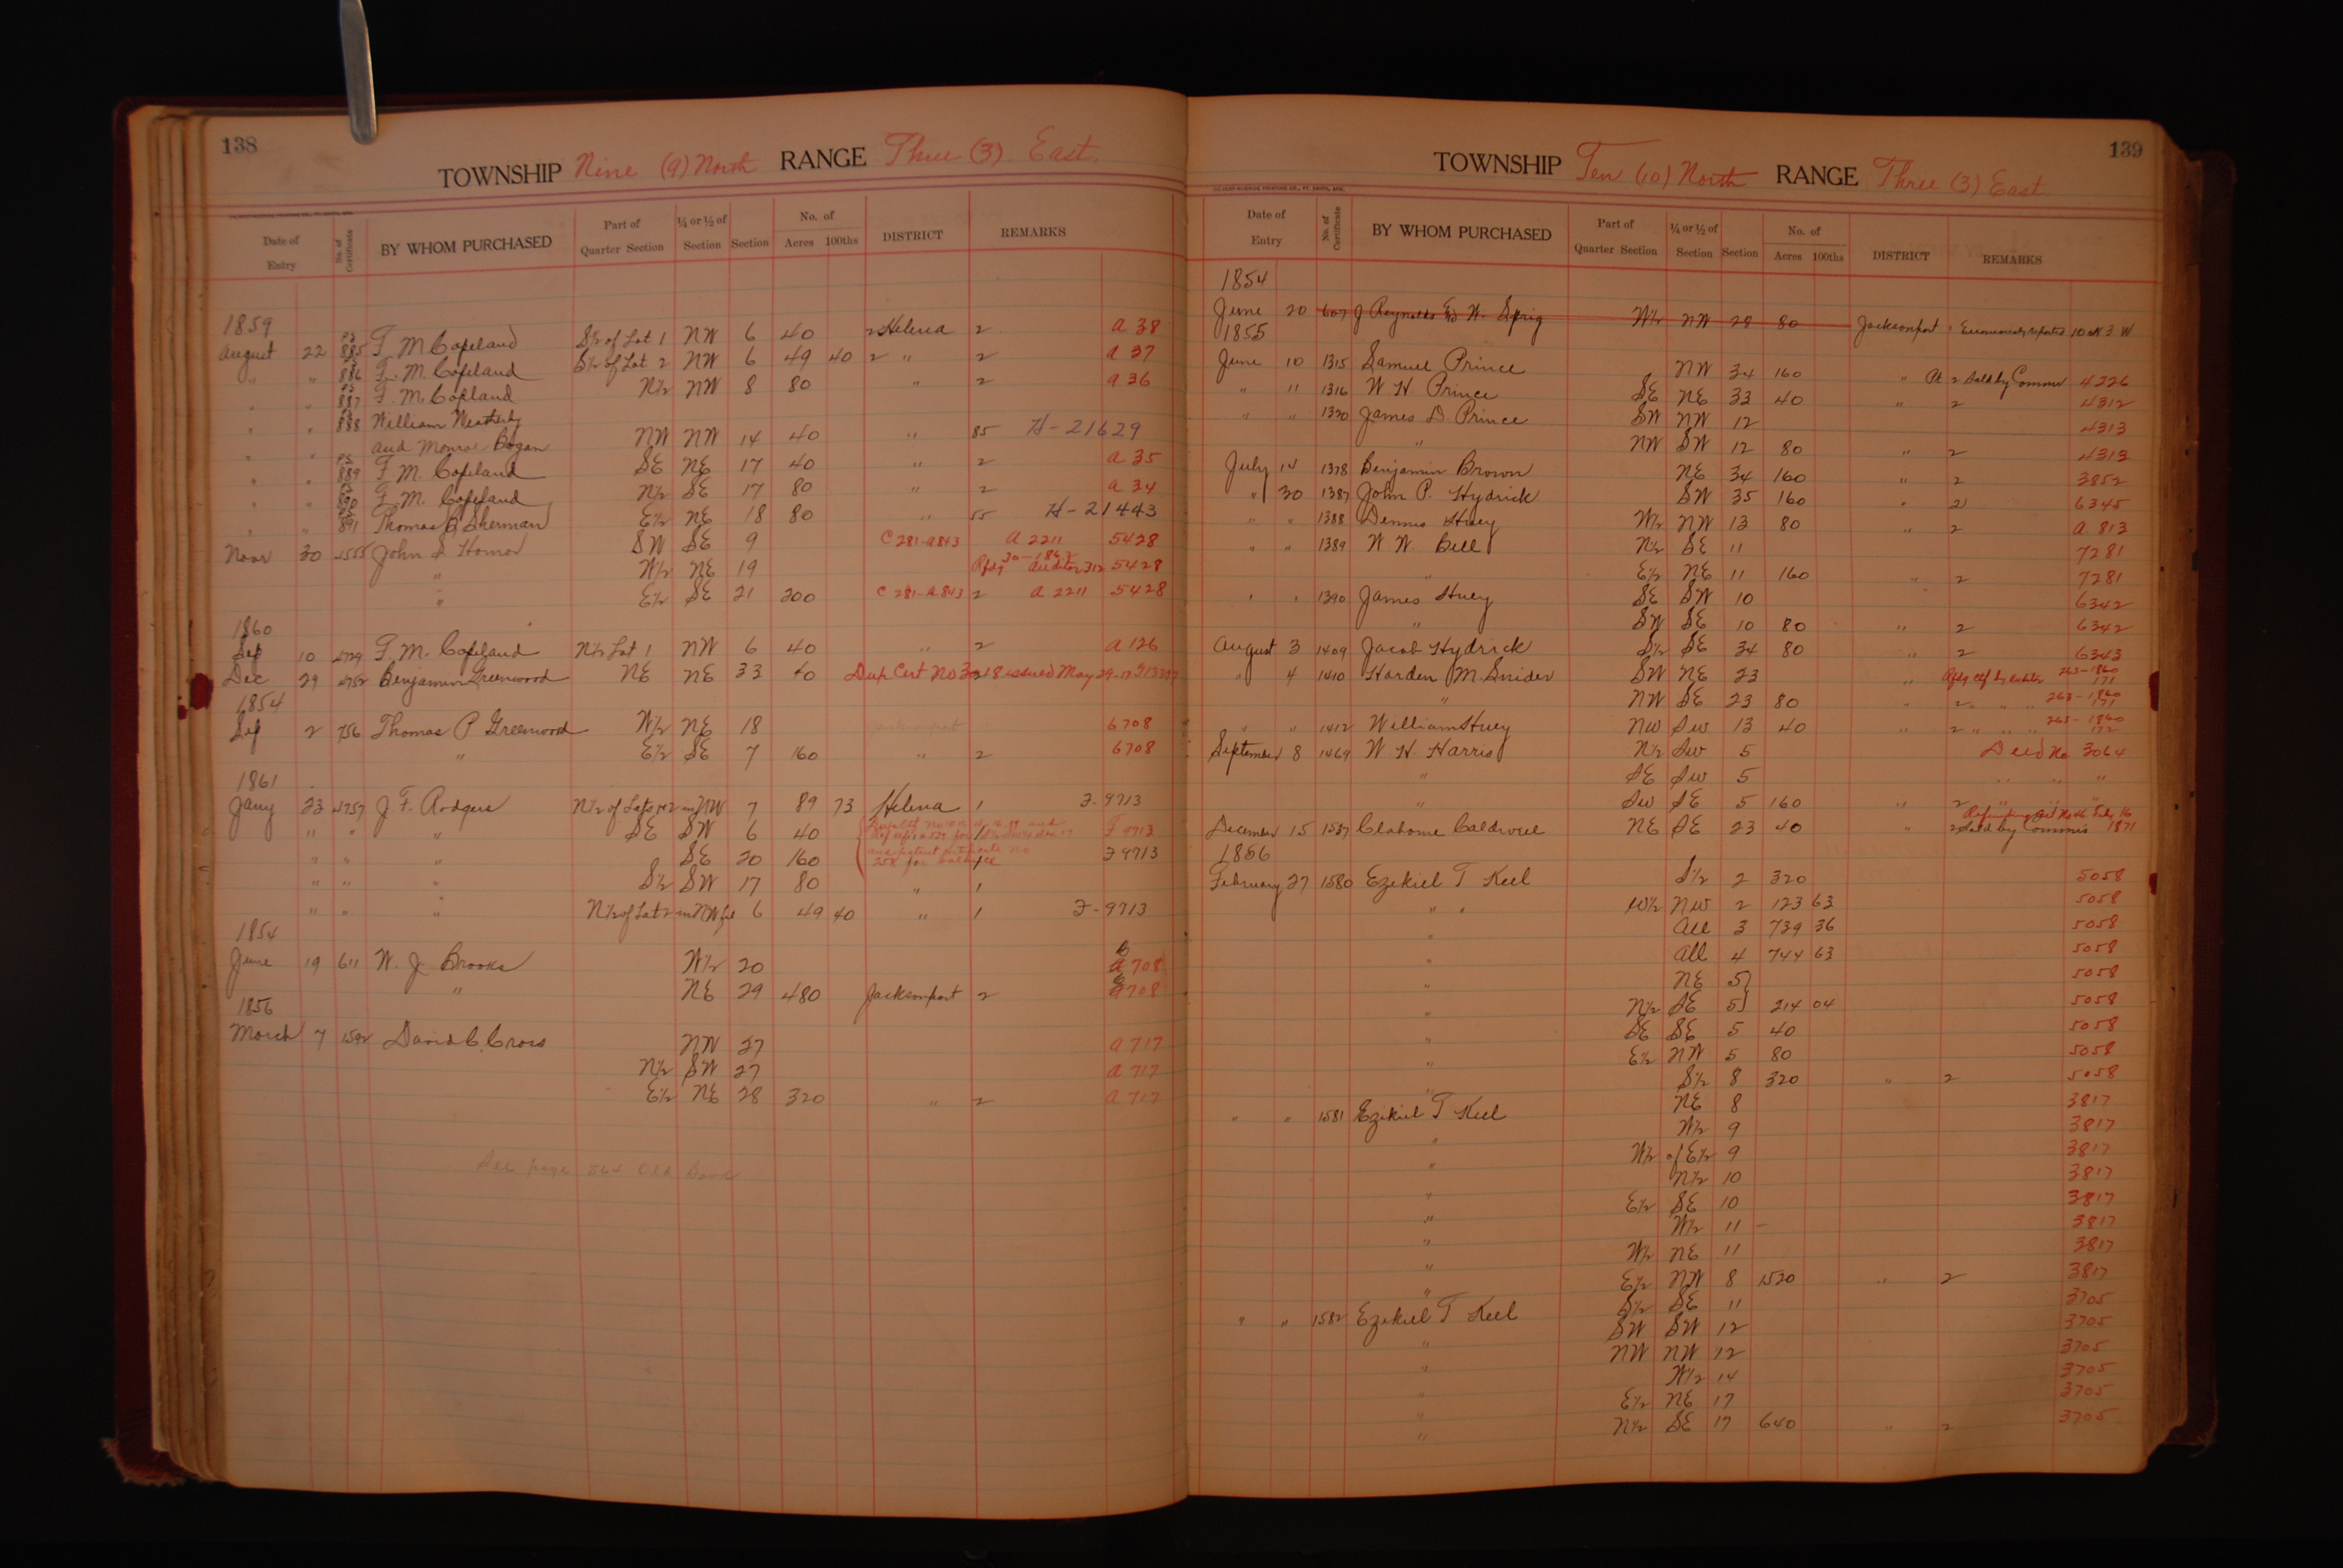 138
TOWNSHIP Nine (9) North RANGE Three (3) East.
Date of Entry No. of Certificate BY WHOM PURCHASED Part of Quarter Section ¼ or ½ of Section Section No. of Acres 100ths DISTRICT REMARKS
1859
August 22 885 F M Copeland S½ of Lot 1 NW 6 40 2 Helena 2 A 38
" " 886 F. M. Copeland S½ of Lot 2 NW 6 49 40 2 " 2 A 37
" " 887 F. M. Copeland N½ NW 8 80 " 2 A 36
" " 888 William Weatherly
and Monroe Bogan NW NW 14 40 " 85 H-21629
" " 889 F M. Copeland SE NE 17 40 " 2 A 35
" " 890 F. M. Copeland N½ SE 17 80 " 2 A 34
" " 891 Thomas B Sherman E½ NE 18 80 " 55 H-21443
Novr 30 John S Homor SW SE 9 C 281-A843 A 2211 5428
" W½ NE 19 5428
" E½ SE 21 200 C 281-A843 2 A 2211 5428
1860
Sep 10 4729 F. M. Copeland N½ Lot 1 NW 6 40 " 2 A 126
Dec 29 4752 Benjamin Greenwood NE NE 33 40 Dup Cert No issued May 29-17
1854
Sep 2 756 Thomas P Greenwood W½ NE 18 Jacksonport 6708
" E½ SE 7 160 " 2 6708
1861
Jany 23 4757 J. F. Rodgers N½ of Lots 1&2 in NW 7 89 73 Helena 1 F-9713
" " " SE SW 6 40 F 9713
" " " SE 20 160 F 9713
258 for balance
" " " S½ SW 17 80 " 1
" " " N½ of Lot 2 in NW frl 6 49 40 " 1 F-9713
1854
June 19 611 W. J Brooks W½ 20 708
" NE 29 480 Jacksonport 2 708
1856
March 7 1592 David C. Cross NW 27 A 717
N½ SW 27 A 717
E½ NE 28 320 " 2 A 717
See page 564 Old Book
139
TOWNSHIP Ten (10) North RANGE Three (3) East.
Date of Entry No. of Certificate BY WHOM PURCHASED Part of Quarter Section ¼ or ½ of Section Section No. of Acres 100ths DISTRICT REMARKS
1854
June 20 607 J Reynolds & W. Sprig W½ NW 28 80 Jacksonport 1 Erroneously reported 10 N 3 W
1855
June 10 1315 Samuel Prince NW 34 160 " Pt 2 Sold by Commr 4226
" 11 1316 W H Prince SE NE 33 40 " 2 4312
" " 1320 James D. Prince SW NW 12 4313
" NW SW 12 80 " 2 4313
July 14 1378 Benjamin Brown NE 34 160 " 2 3852
" 30 1387 John P. Hydrick SW 35 160 " 2 6345
" " 1388 Dennis Huey W½ NW 13 80 " 2 A 813
" " 1389 W W. Bell N½ SE 11 7281
" E½ NE 11 160 " 2 7281
" " 1390 James Huey SE SW 10 6342
" SW SE 10 80 " 2 6342
August 3 1409 Jacob Hydrick S½ SE 34 80 " 2 6343
" 4 1410 Harden M. Snider SW NE 23 " 263-1860 171
NW SE 23 80 " 2 " " " 263-1860 171
" " 1412 William Huey NW SW 13 40 " 2 " " " 263-1860 172
September 8 1469 W H. Harris N½ SW 5 Deed No 3064
" SE SW 5 " " "
" SW SE 5 160 " 2 " " "
December 15 1537 Claborne Caldwell NE SE 23 40 " 2 Sold by Commis 1871
1856
February 27 1580 Ezekiel T Keel S½ 2 320 5058
" " W½ NW 2 123 63 5058
" All 3 739 36 5058
" All 4 744 63 5058
" NE 5} 5058
" N½ SE 5} 214 04 5058
" SE SE 5 40 5058
" E½ NW 5 80 5058
" S½ 8 320 " 2 5058
" " 1581 Ezikiel T Keel NE 8 3817
" W½ 9 3817
" W½ of E½ 9 3817
N½ 10 3817
" E½ SE 10 3817
" W½ 11 3817
" W½ NE 11 3817
" E½ NW 8 1520 " 2 3817
" " 1582 Ezekiel T Keel S½ SE 11 3705
SW SW 12 3705
" NW NW 12 3705
" W½ 14 3705
" E½ NE 17 3705
" N½ SE 17 640 " 2 3705
"